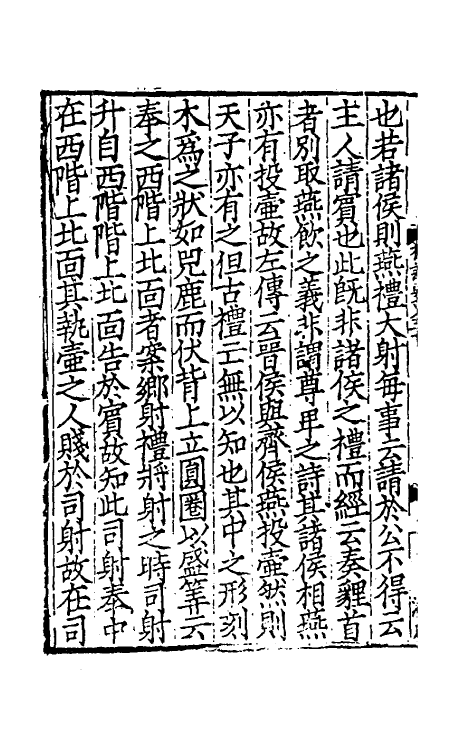 也若諸侯則燕禮大射每事云請於公不得云
主人請賓也此旣非諸侯之禮而經云奏貍首
者別取燕飲之義非謂尊卑之詩其諸侯相燕
亦有投壺故左傳云晉侯與齊侯燕投壺然則
天子亦有之但古禮亡無以知也其中之形刻
木爲之狀如兕鹿而伏背上立圓圈以盛筭云
奉之西階上北面者案鄉射禮將射之時司射
升自西階階上北面告於賓故知此司射奉中
在西階上北面其執壺之人賤於司射故在司